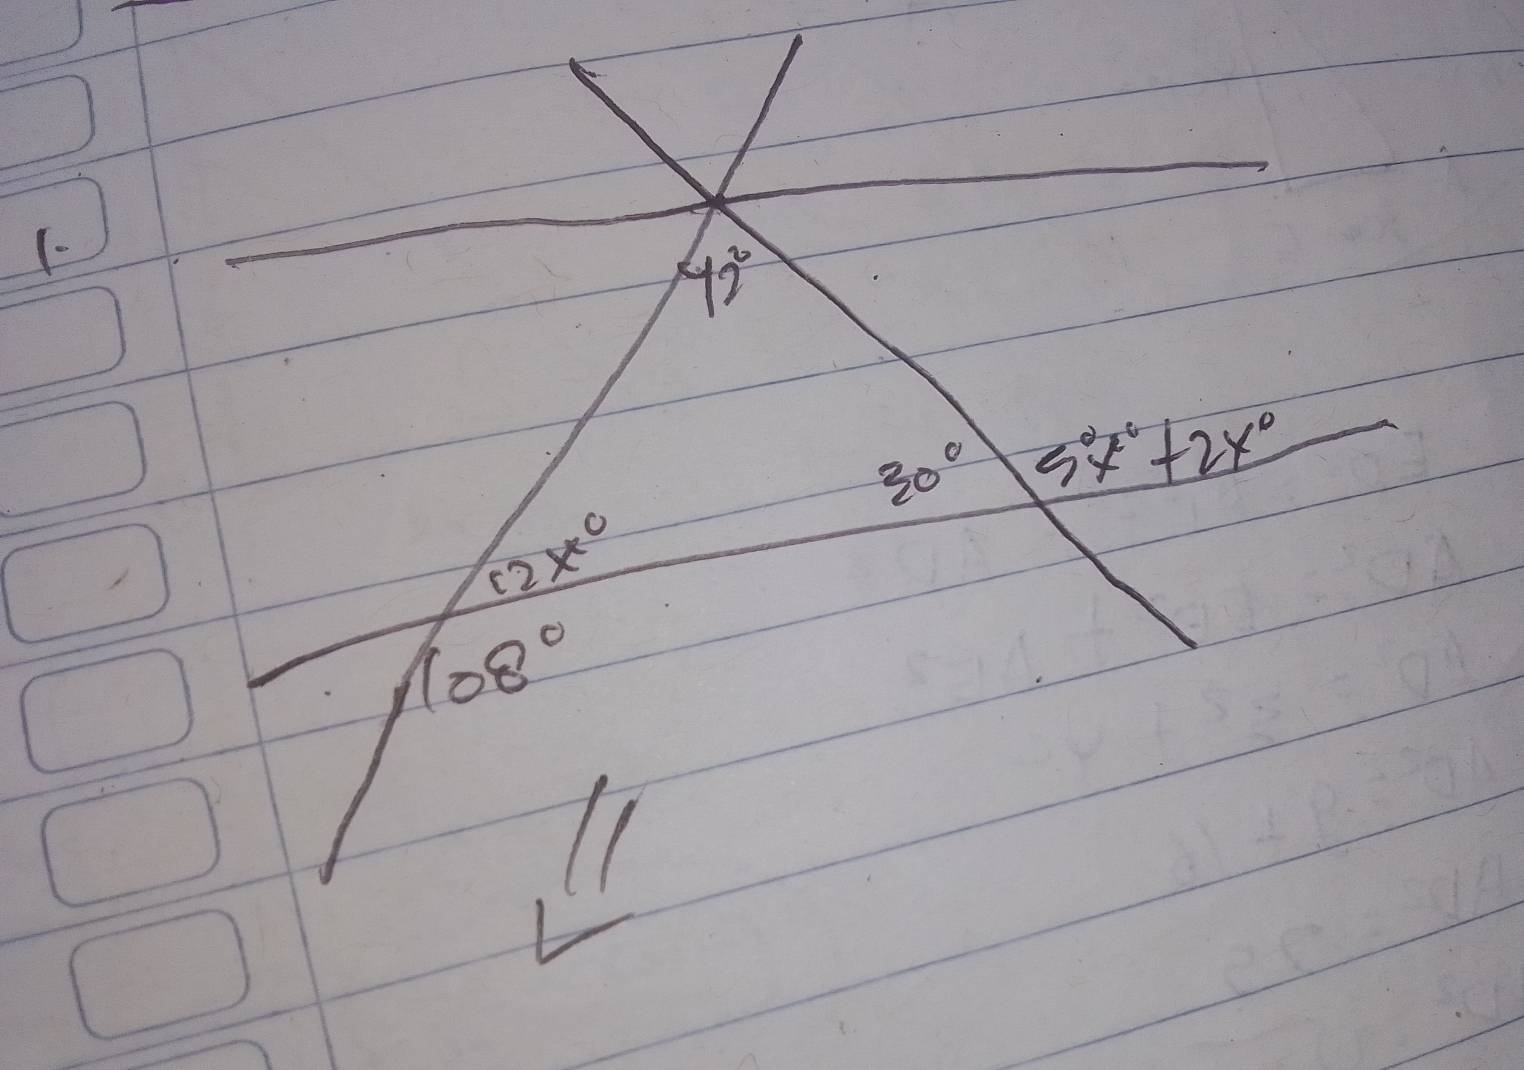 1.
42°
30°
5°x° + 2x°
12x°
108°